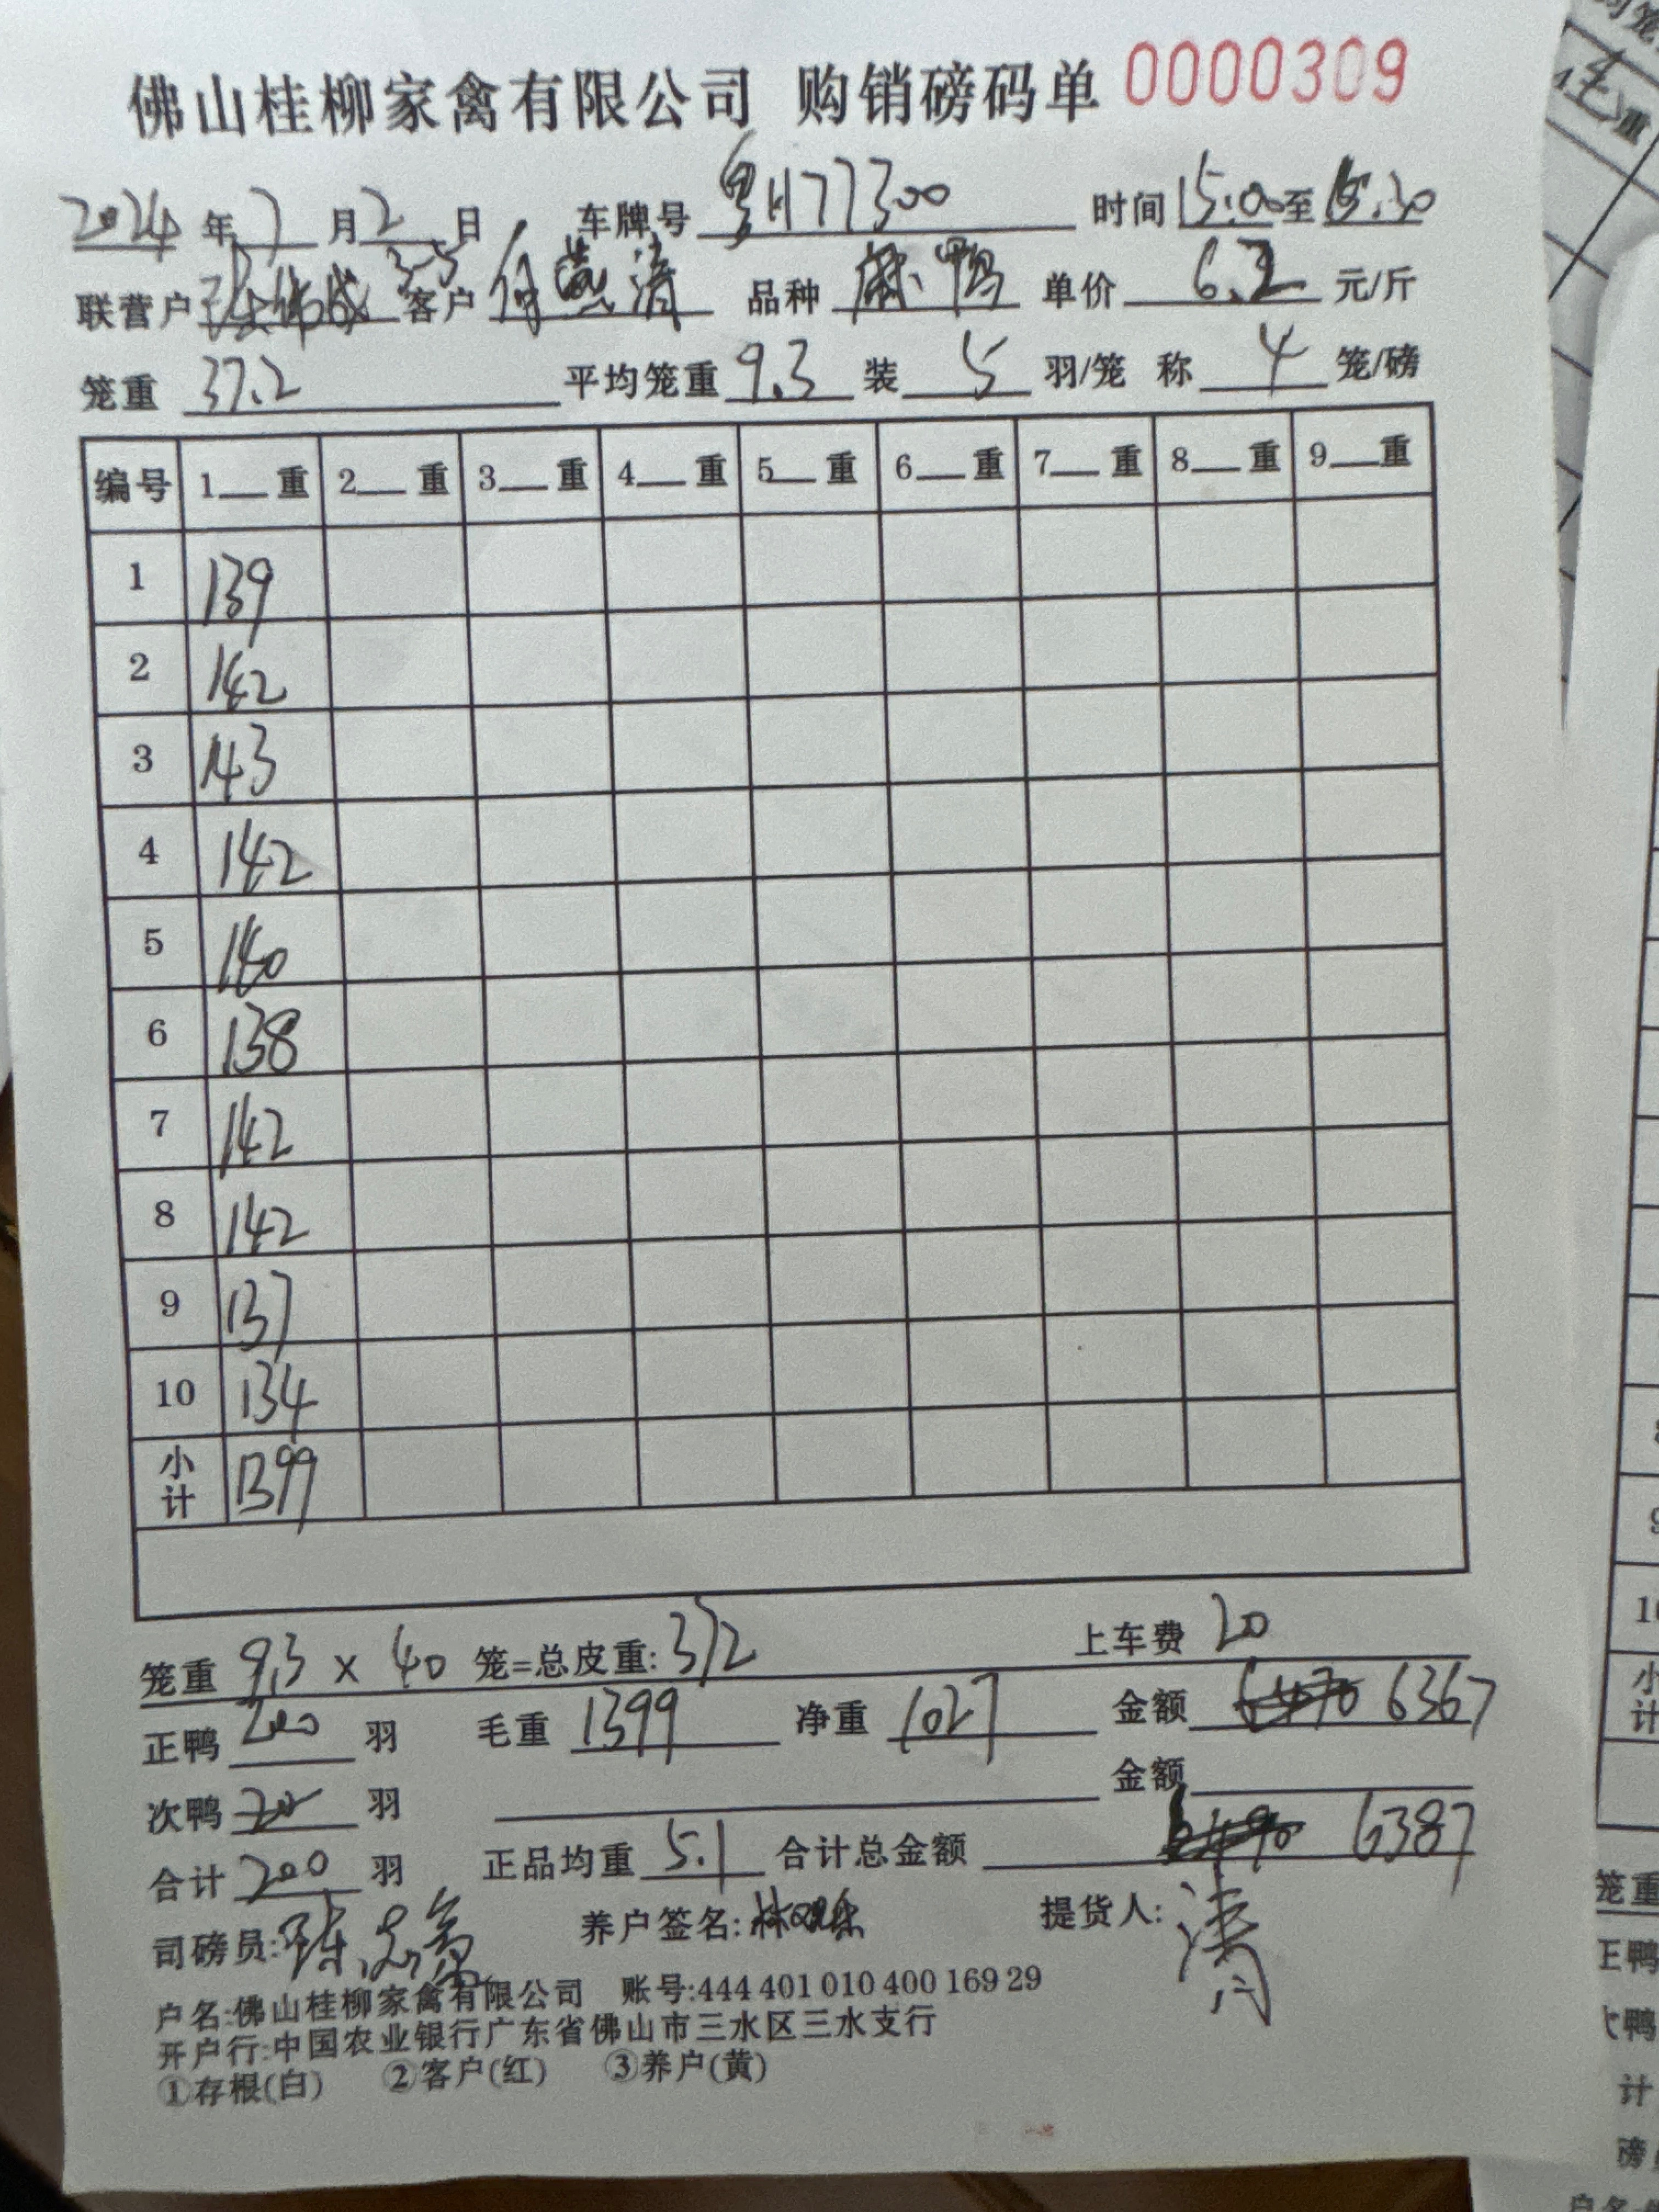 佛山桂柳家禽有限公司 购销磅码单 0000309
2024 年 7 月 2 日 车牌号 粤H77300 时间 15:00 至 15:30
联营户 35 客户 何 清 品种 麻鸭 单价 6.2 元/斤
笼重 37.2 平均笼重 9.3 装 5 羽/笼 称 4 笼/磅
编号 1 重 2 重 3 重 4 重 5 重 6 重 7 重 8 重 9 重
1 139
2 142
3 143
4 142
5 140
6 138
7 142
8 142
9 137
10 134
小计 1399
笼重 9.3 X 40 笼=总皮重: 372 上车费 20
正鸭 200 羽 毛重 1399 净重 1027 金额 6470 6367
次鸭 羽 金额
合计 200 羽 正品均重 5.1 合计总金额 6490 6387
司磅员: 陈志 养户签名: 林 提货人: 清
户名:佛山桂柳家禽有限公司 账号:444 401 010 400 169 29
开户行:中国农业银行广东省佛山市三水区三水支行
①存根(白) ②客户(红) ③养户(黄)